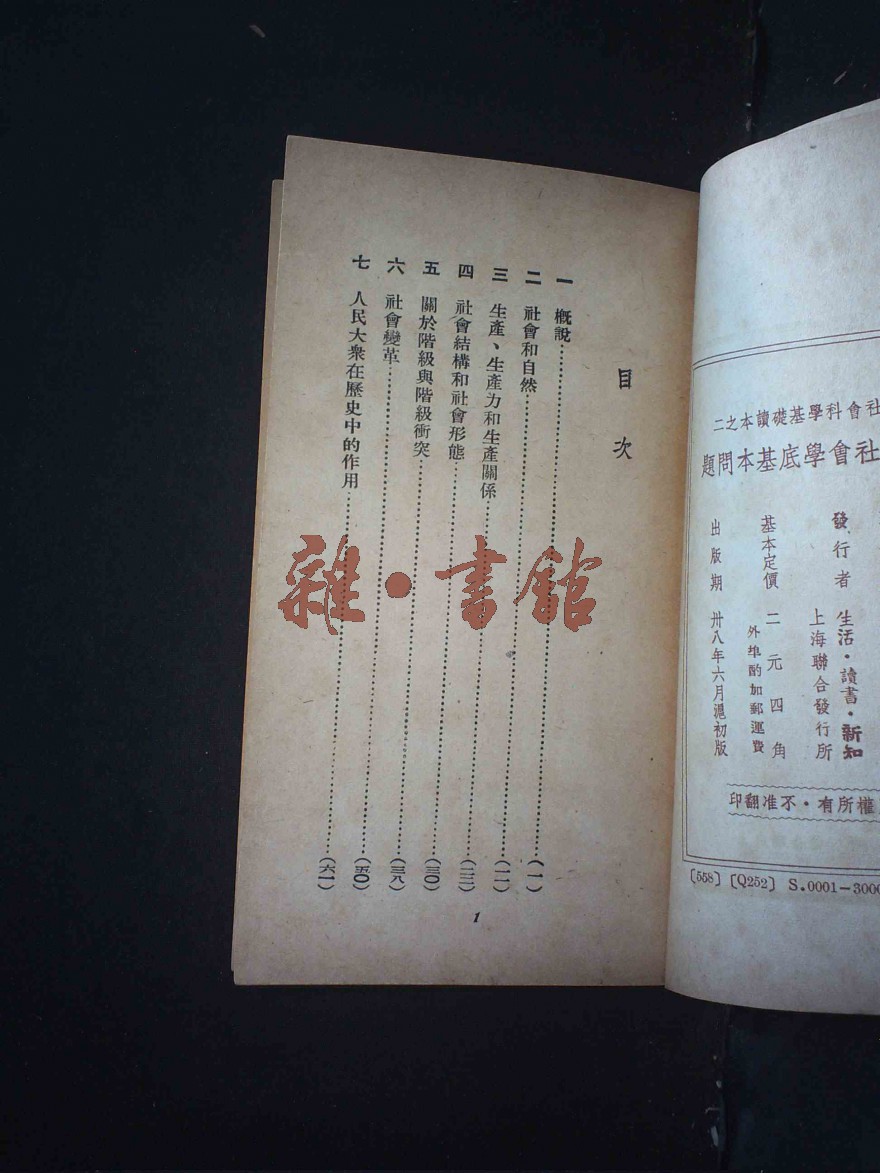 社會科學基礎讀本之二
社會學底基本問題
發行者 生活・讀書・新知
上海聯合發行所
基本定價 二元四角
外埠酌加郵運費
出版期 卅八年六月滬初版
權所有・不准翻印
〔558〕〔Q252〕 S.0001—3000
目次
一 概說……(一)
二 社會和自然……(一一)
三 生產、生產力和生產關係……(二二)
四 社會結構和社會形態……(三〇)
五 關於階級與階級衝突……(三八)
六 社會變革……(五〇)
七 人民大衆在歷史中的作用……(六一)
1
雜・書館